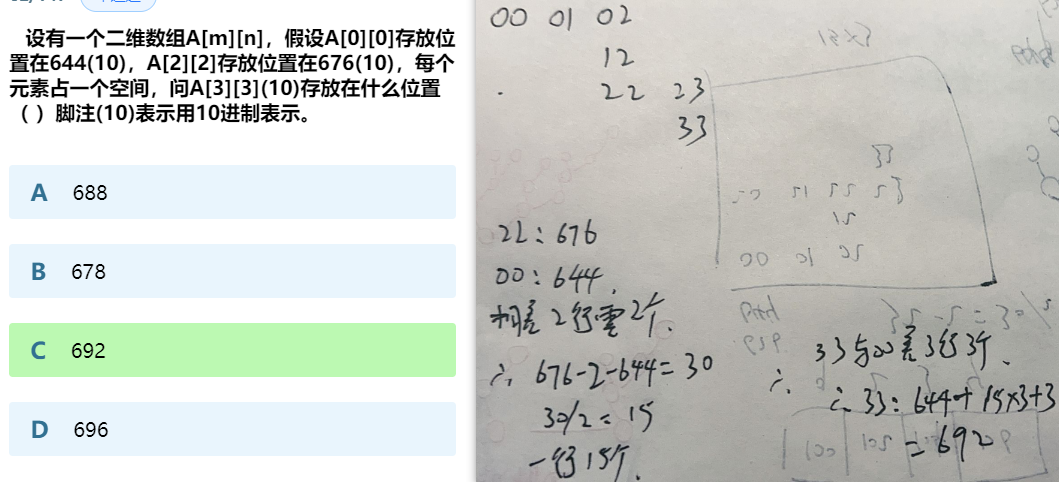 设有一个二维数组A[m][n]，假设A[0][0]存放位
置在644(10)，A[2][2]存放位置在676(10)，每个
元素占一个空间，问A[3][3](10)存放在什么位置
（ ）脚注(10)表示用10进制表示。
A 688
B 678
C 692
D 696
00 01 02
12
22 23
33
22：676
00：644.
相差2行零2个.
∴ 676-2-644=30
30/2=15
一行15个.
33与00差3行3个.
∴ 33：644+15×3+3
=692